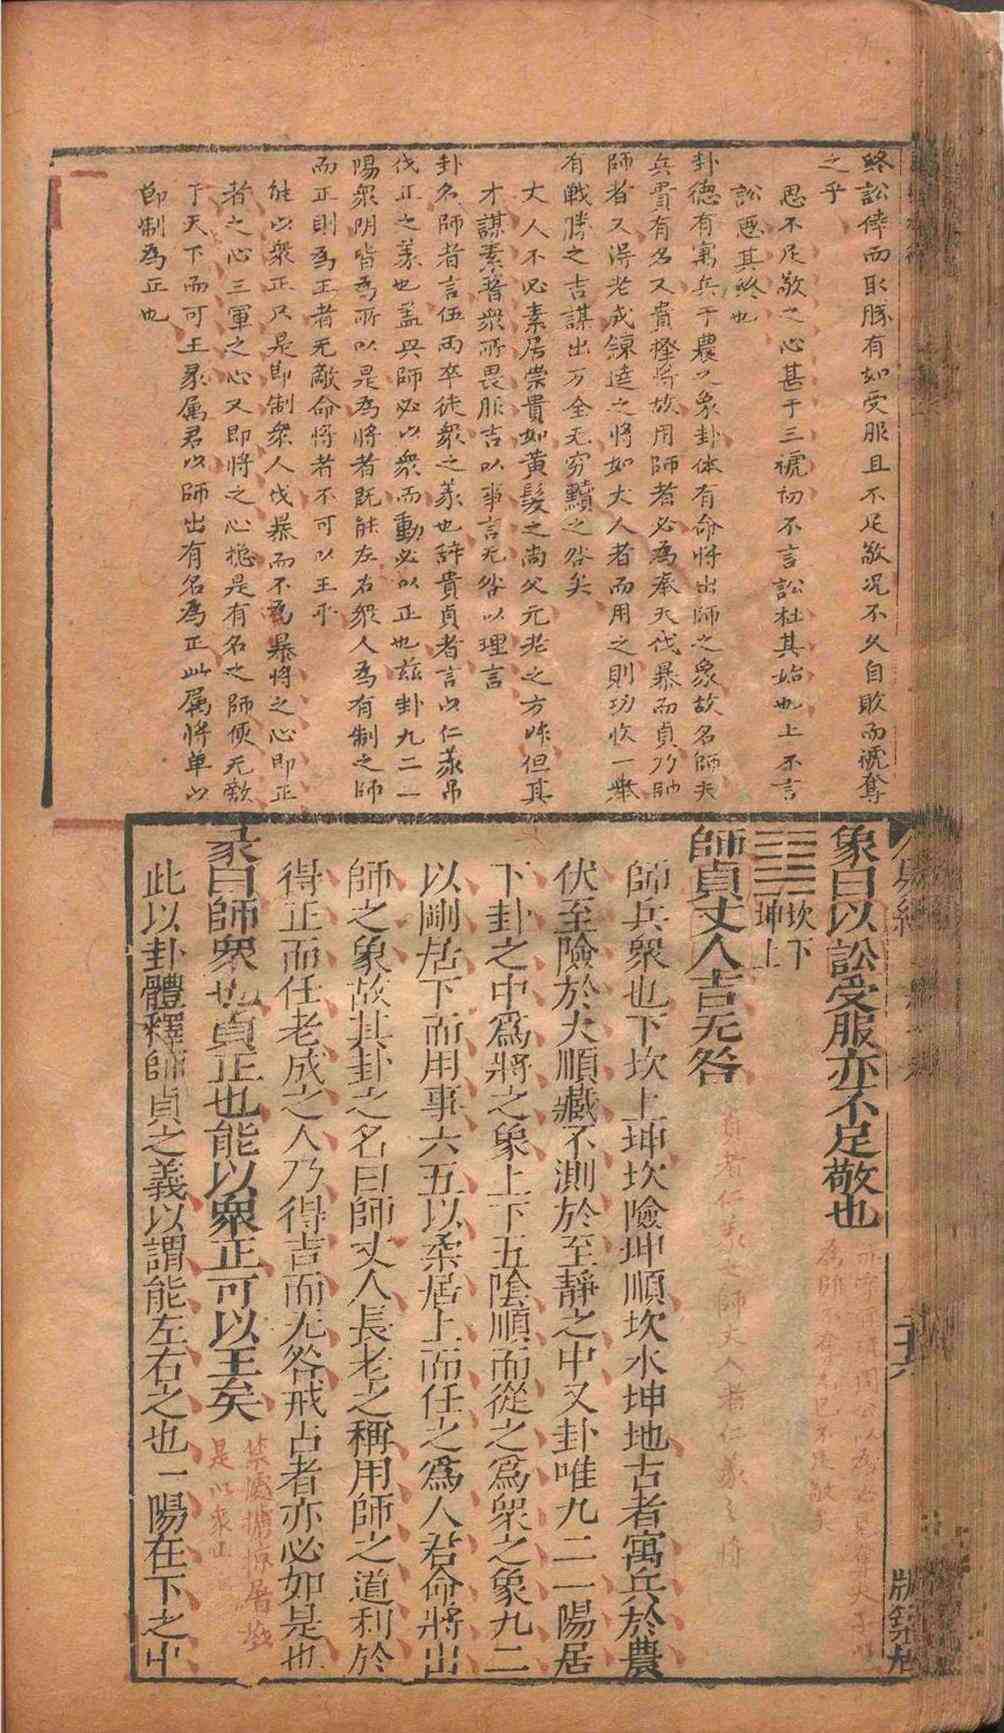 終訟倖而取勝有如受服且不足敬况不久自敗而褫奪
之乎
思不足敬之心甚于三褫初不言訟杜其始也上不言
訟惡其終也
卦德有寓兵于農之象卦体有命将出師之象故名師夫
兵貴有名又貴擇將故用師者必為奉天伐暴而貞乃帥
師者又得老成鍊達之將如丈人者而用之則功收一舉
有戰勝之吉謀出万全无窮黷之咎矣
丈人不必素居崇貴如黃髮之尚父元老之方叔但其
才謀素著衆所畏服吉以事言无咎以理言
卦名師者言伍兩卒徒衆之義也辞貴貞者言以仁義吊
伐正之義也盖兴師必以衆而動必以正也兹卦九二一
陽衆阴皆為所以是為將者既能左右衆人為有制之師
而正則為王者无敵命将者不可以王乎
能以衆正只是節制衆人伐暴而不為暴將之心即正
者之心三軍之心又即將之心摠是有名之師便无敵
于天下而可王象属君以師出有名為正此属將單以
節制為正也
象曰以訟受服亦不足敬也
坎下
坤上
師貞丈人吉无咎
貞者仁義之師丈人者仁義之將
師兵衆也下坎上坤坎險坤順坎水坤地古者寓兵於農
伏至險於大順藏不測於至靜之中又卦唯九二一陽居
下卦之中爲將之象上下五陰順而從之爲衆之象九二
以剛居下而用事六五以柔居上而任之爲人君命將出
師之象故其卦之名曰師丈人長老之稱用師之道利於
得正而任老成之人乃得吉而无咎戒占者亦必如是也
彖曰師衆也貞正也能以衆正可以王矣
此以卦體釋師貞之義以謂能左右之也一陽在下之中